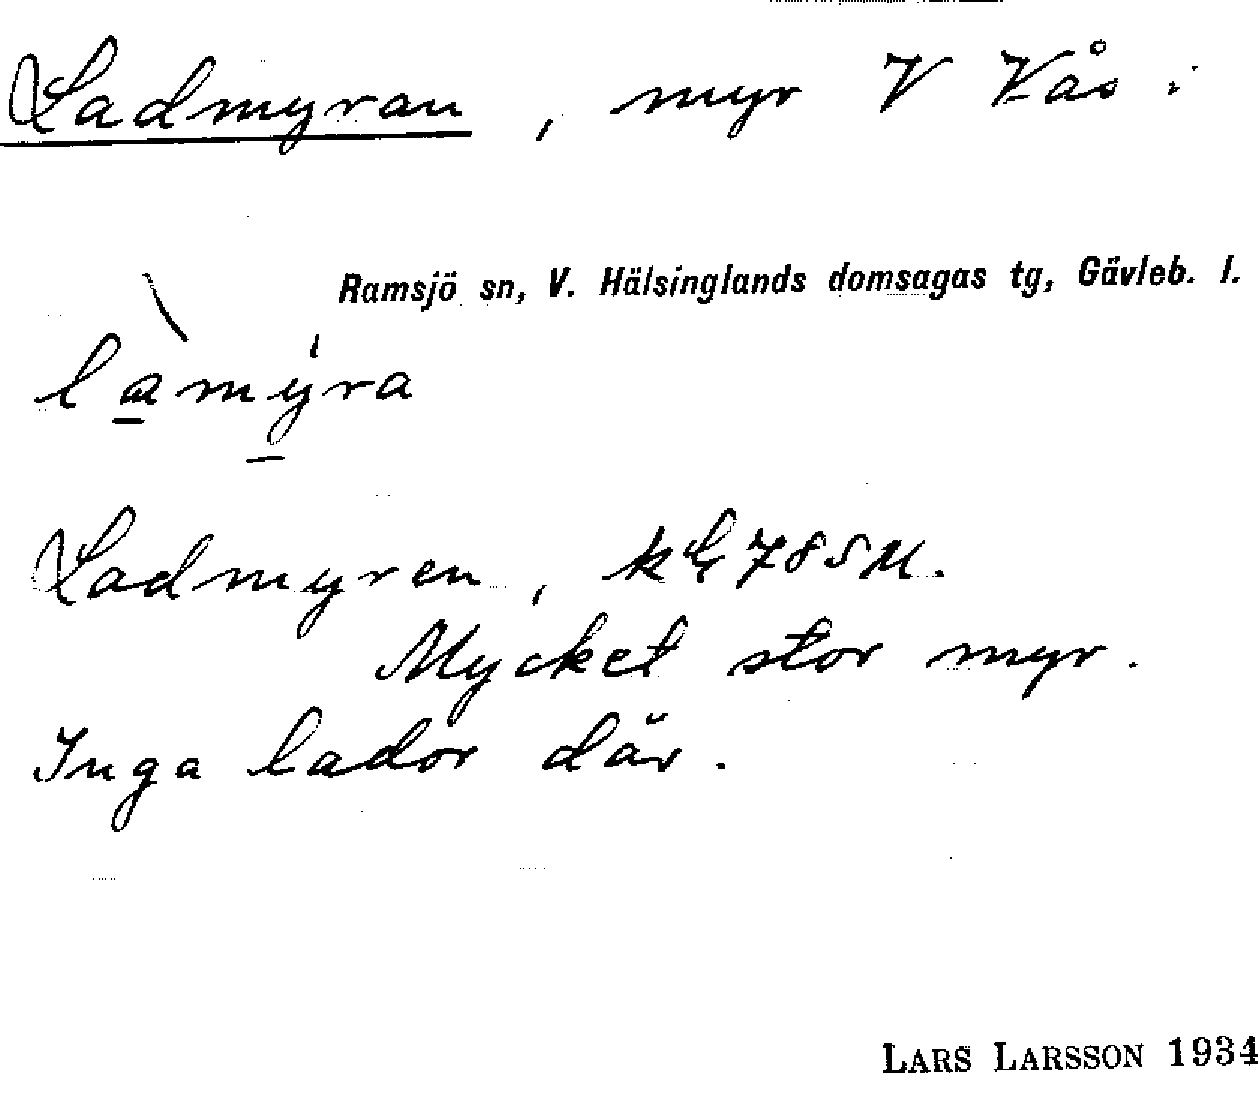 Ladmyran, myr V Kås i
Ramsjö sn, V. Hälsinglands domsagas tg, Gävleb. l.
làmýra
Ladmyren, kL 78 SM.
Mycket stor myr.
Inga lador där.
LARS LARSSON 1934